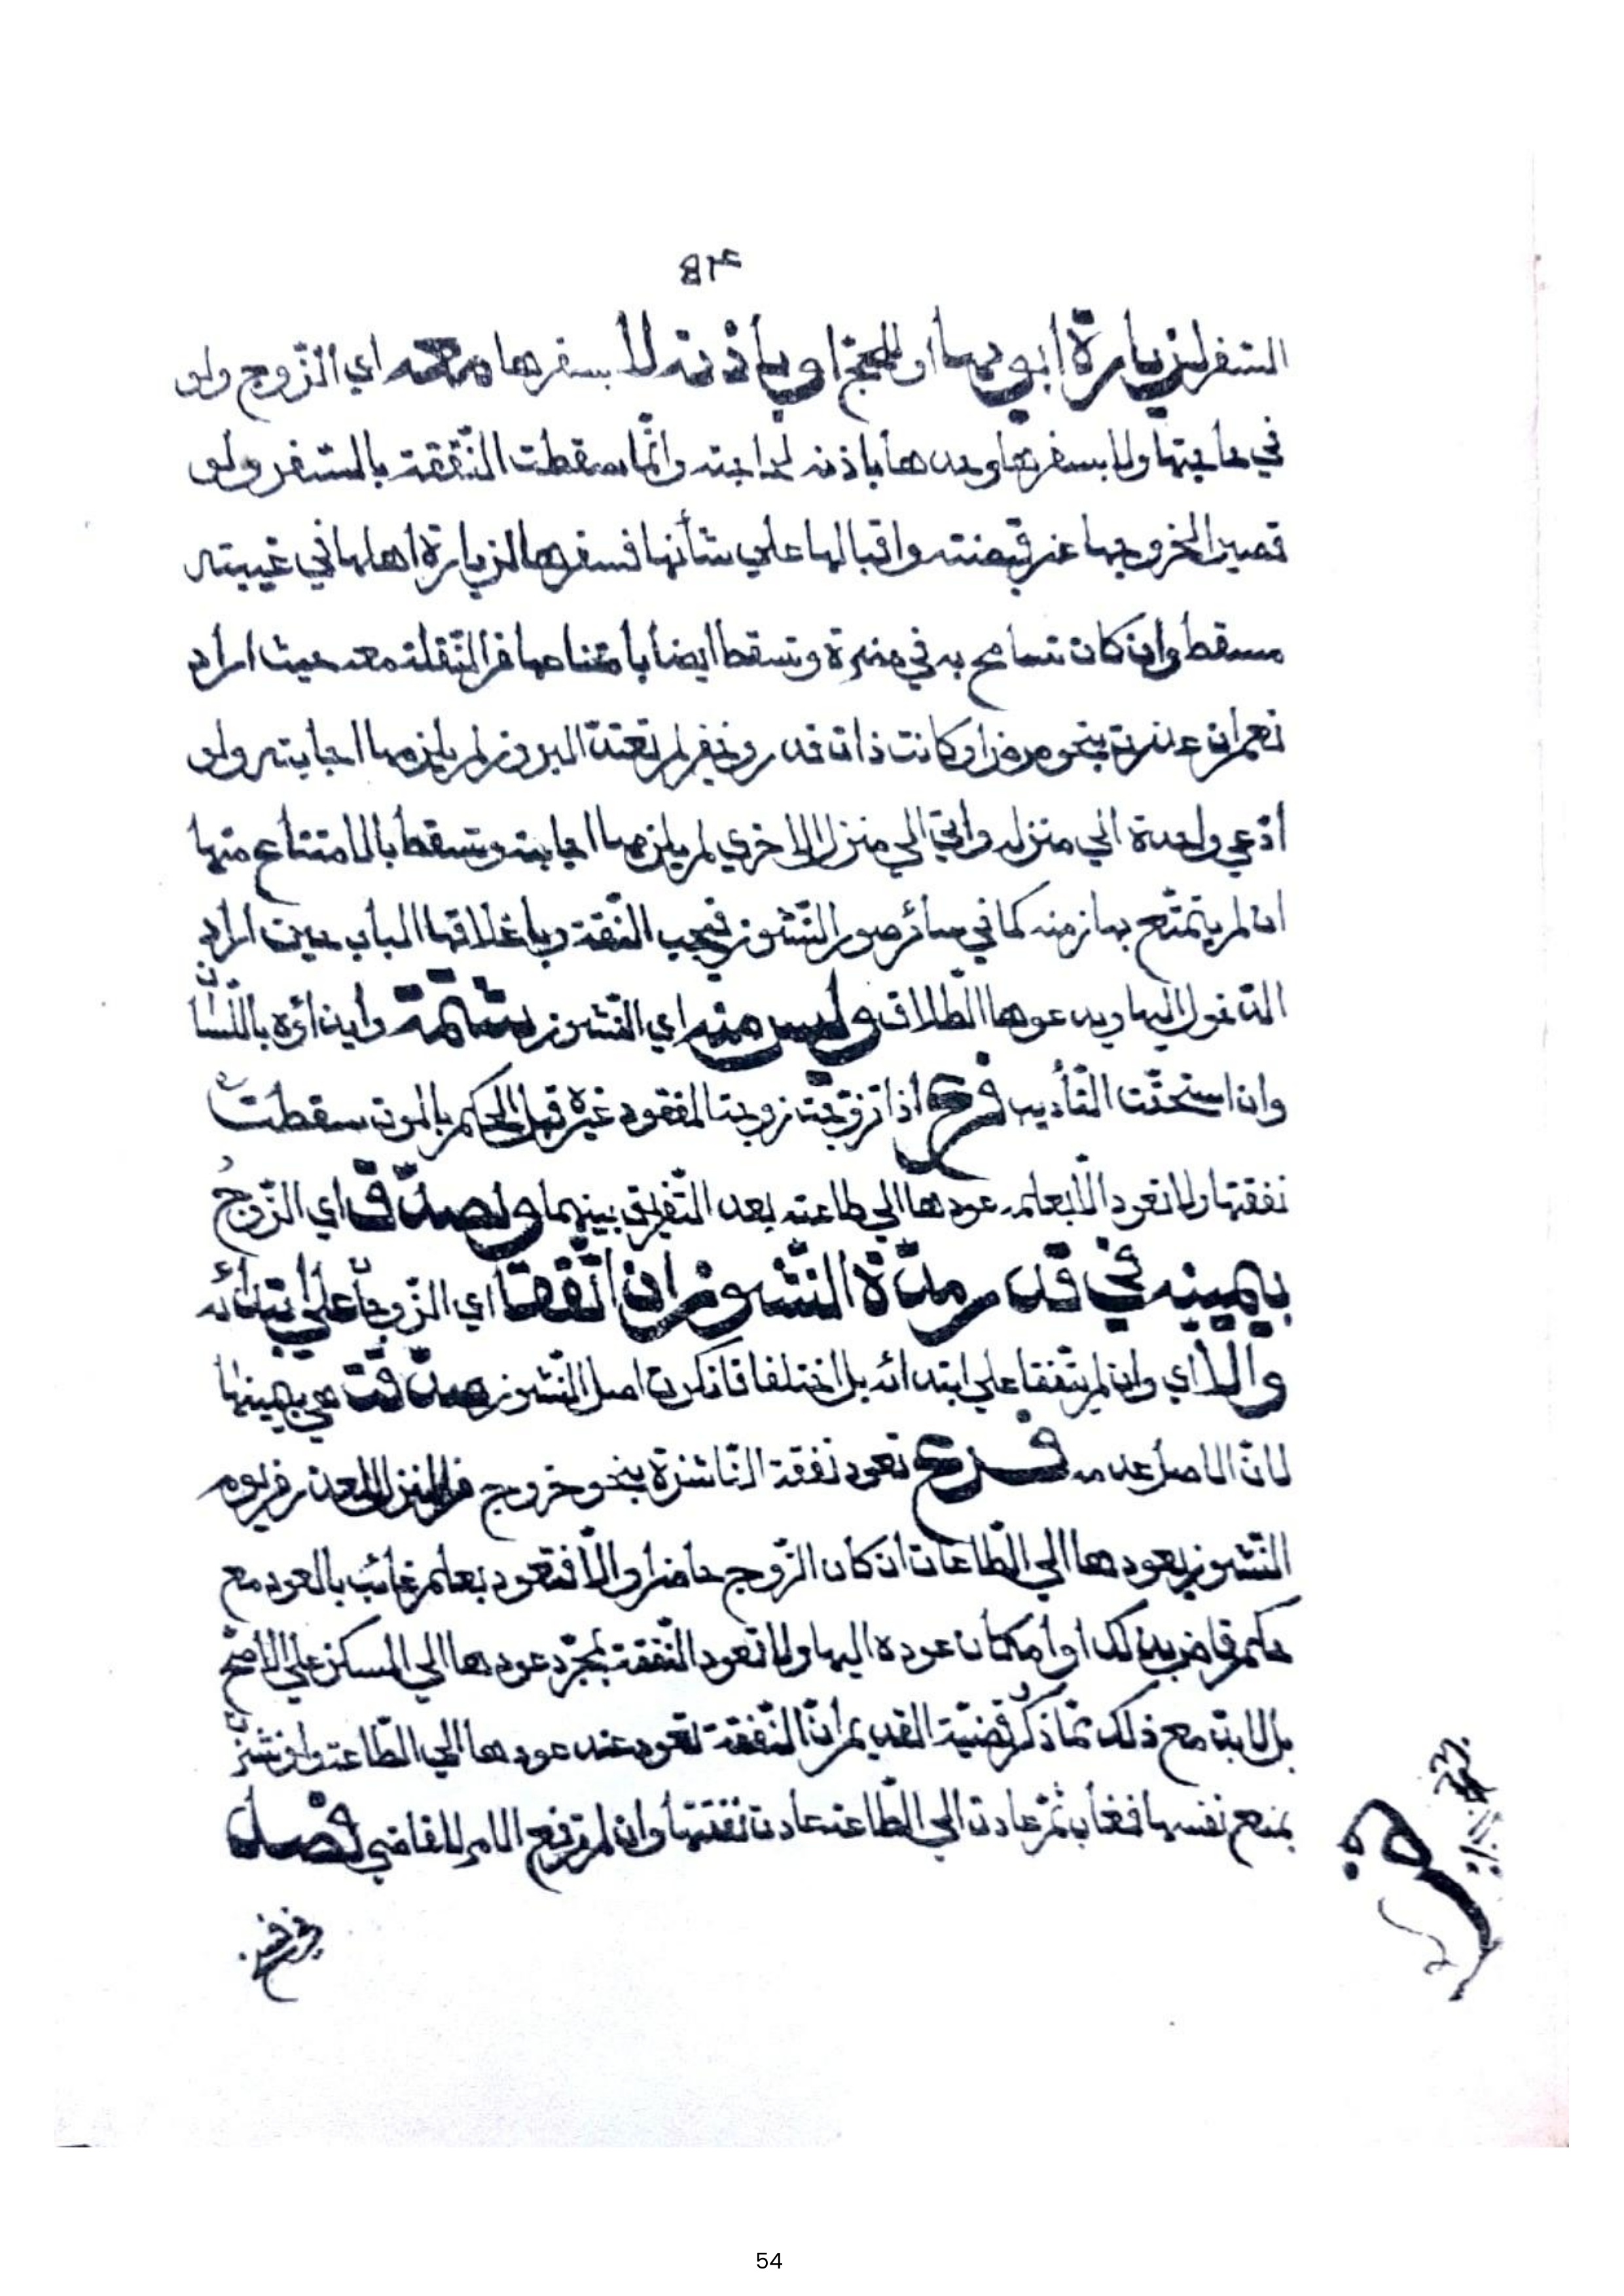 ٥٤
السفر لزيارة ابويها او للحج او باذنه لا بسفرها معه اي الزّوج ولو
في حاجتها ولا بسفرها وحدها باذنه لحاجته وانّما سقطت النّفقة بالسفر ولو
قصيرا لخروجها عن قبضته واقبالها علي شأنها فسفرها لزيارة اهلها في غيبته
مسقط وان كان تسامح به في وتسقط ايضا بامتناعها من النّقلة معه حيث اراد
نعم ان عذرت بنحو مرض او كانت ذات قدر وخفر لم تعتد البروز لم يلزمها اجابته ولو
ادّعي واحدة الي منزله واتي الي منزل الاخري لم يلزمها اجابته وتسقط بالامتناع منها
ان لم يتمتّع بها زمنه كما في سائر صور النّشوز فيجب النّفقة وباغلاقها الباب حين اراد
الدّخول اليها وبدعوها الطّلاق وليس منه اي النّشوز بشتمه وايذائه باللّسان
وان استحقّت التّأديب فرع اذا تزوّجت زوجة المفقود غيره قبل الحكم بالموت سقطت
نفقتها ولا تعود الّا بعلمه عودها الي طاعته بعد التّفريق بينهما ولصدّق اي الزّوج
بيمينه في قدر مدّة النّشوز ان اتّفقا اي الزّوجان علي ابتدائه
والّا اي وان لم يتّفقا علي ابتدائه بل اختلفا فانكرت اصل النّشوز صدّقت هي بيمينها
لانّ الاصل عدمه فرع تعود نفقة النّاشزة بنحو خروج من المنزل لا لعذر في يوم
النّشوز بعودها الي الطّاعات ان كان الزّوج حاضرا والّا فتعود بعلم غائب بالعود مع
حكم قاض بذلك او امكان عوده اليها ولا تعود النّفقة بمجرّد عودها الي المسكن علي الاصح
بل لا بدّ مع ذلك ممّا ذكر قضيّة القديم انّ النّفقة تعود عند عودها الي الطّاعة وان نشزت
بمنع نفسها فغاب ثمّ عادت الي الطّاعة عادت نفقتها وان لم ترفع الامر للقاضي فصل
54